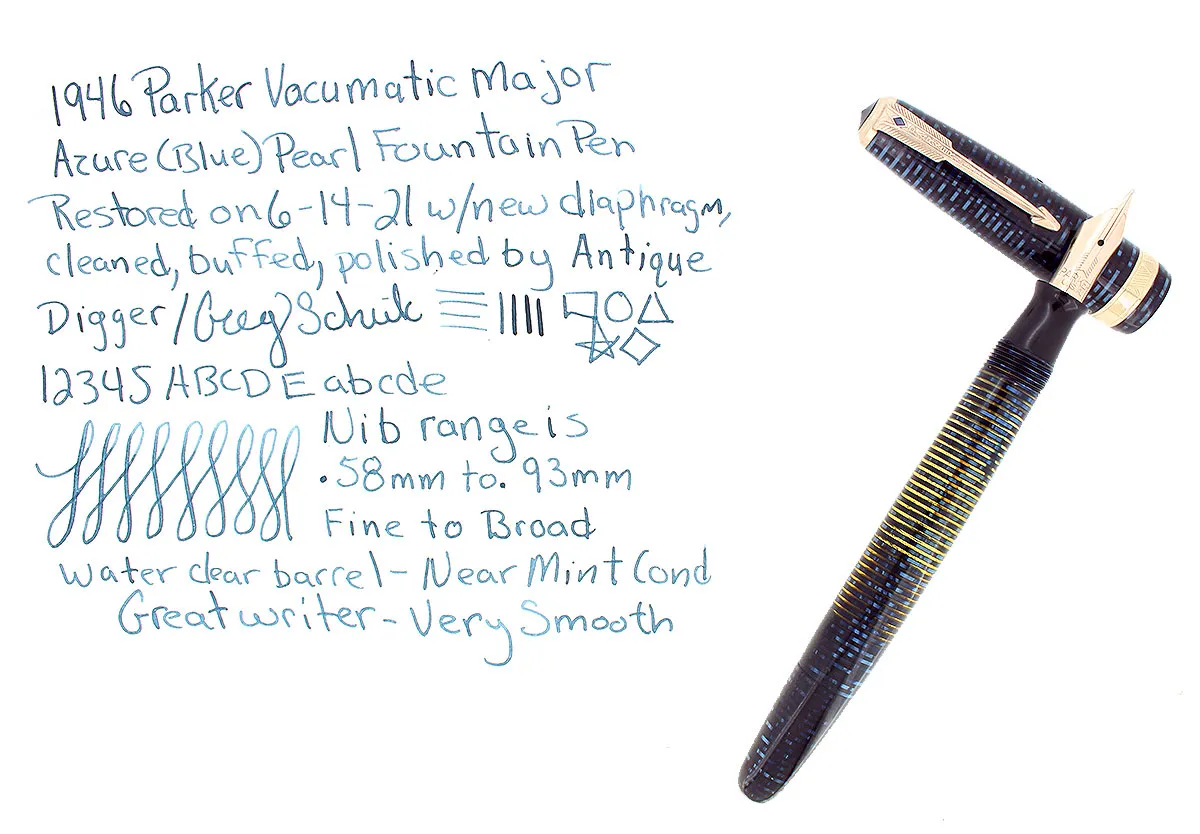 1946 Parker Vacumatic Major
Azure (Blue) Pearl Fountain Pen
Restored on 6-14-21 w/new diaphragm,
cleaned, buffed, polished by Antique
Digger/Greg
12345 ABCDE abcde
Nib range is
.58mm to .93mm
Fine to Broad
Water clear barrel - Near Mint Cond
Great writer - Very Smooth